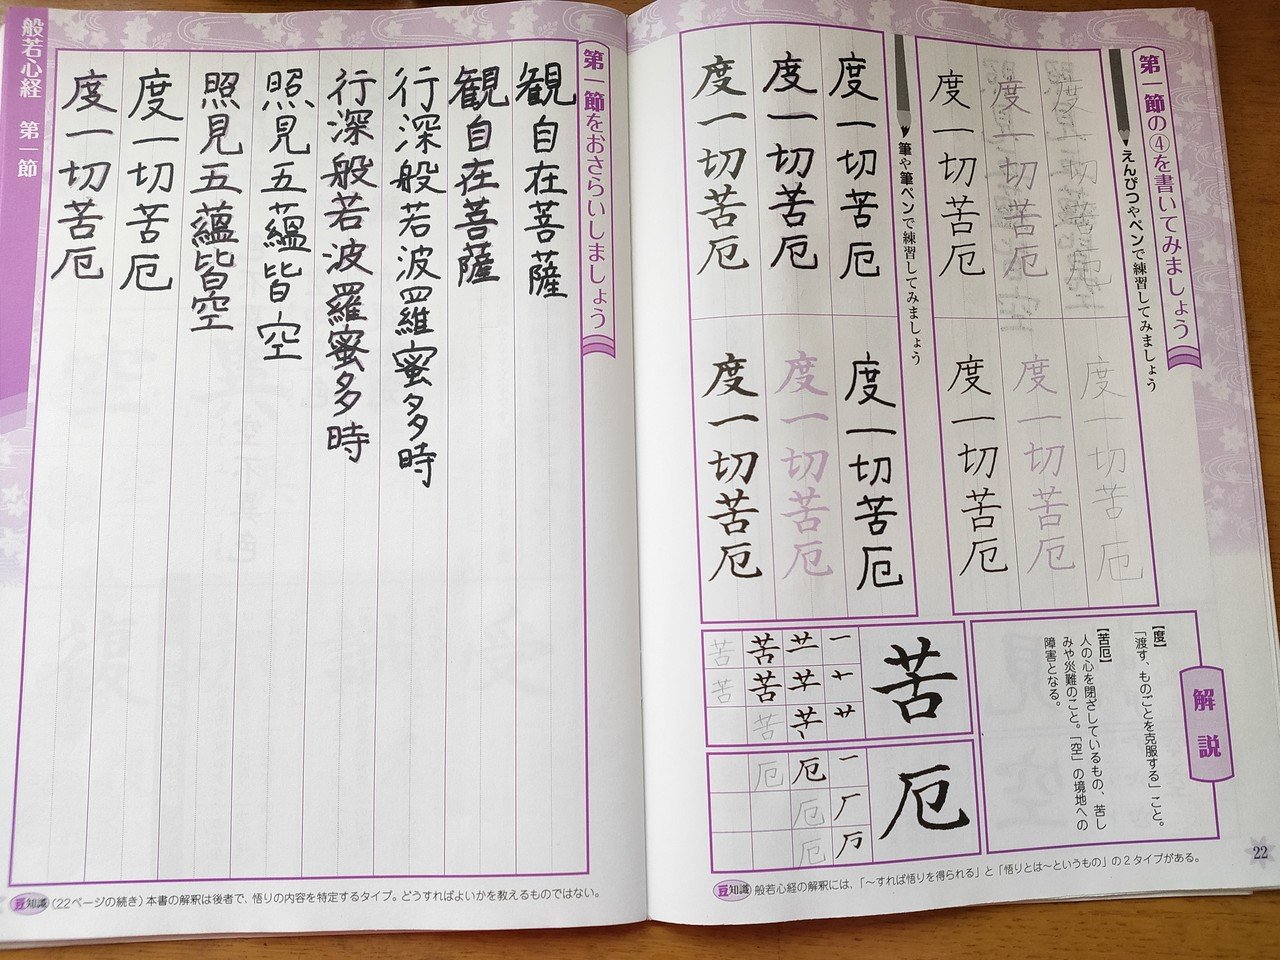 第一節の④を書いてみましょう
えんぴつやペンで練習してみましょう
度一切苦厄
度一切苦厄
度一切苦厄
度一切苦厄
度一切苦厄
度一切苦厄
筆や筆ペンで練習してみましょう
度一切苦厄
度一切苦厄
度一切苦厄
度一切苦厄
度一切苦厄
度一切苦厄
解説
【度】
「渡す、ものごとを克服する」こと。
【苦厄】
人の心を閉ざしているもの、苦し
みや災難のこと。「空」の境地への
障害となる。
苦
苦苦
苦苦苦
厄
厄
厄
厄厄
22
豆知識 般若心経の解釈には、「〜すれば悟りを得られる」と「悟りとは〜というもの」の2タイプがある。
第一節をおさらいしましょう
観自在菩薩
観自在菩薩
行深般若波羅蜜多時
行深般若波羅蜜多時
照見五蘊皆空
照見五蘊皆空
度一切苦厄
度一切苦厄
般若心経 第一節
豆知識 (22ページの続き)本書の解釈は後者で、悟りの内容を特定するタイプ。どうすればよいかを教えるものではない。